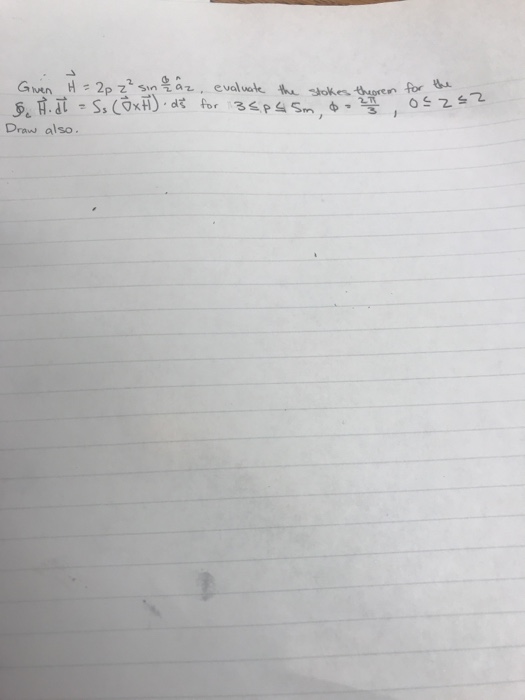 Given H⃗ = 2ρ z² sin ϕ/2 âz, evaluate the stokes theorem for the
∮c H⃗.dl⃗ = Ss (∇⃗xH⃗)·ds⃗ for 3≤ρ≤5m, ϕ = 2π/3, 0≤z≤2
Draw also.